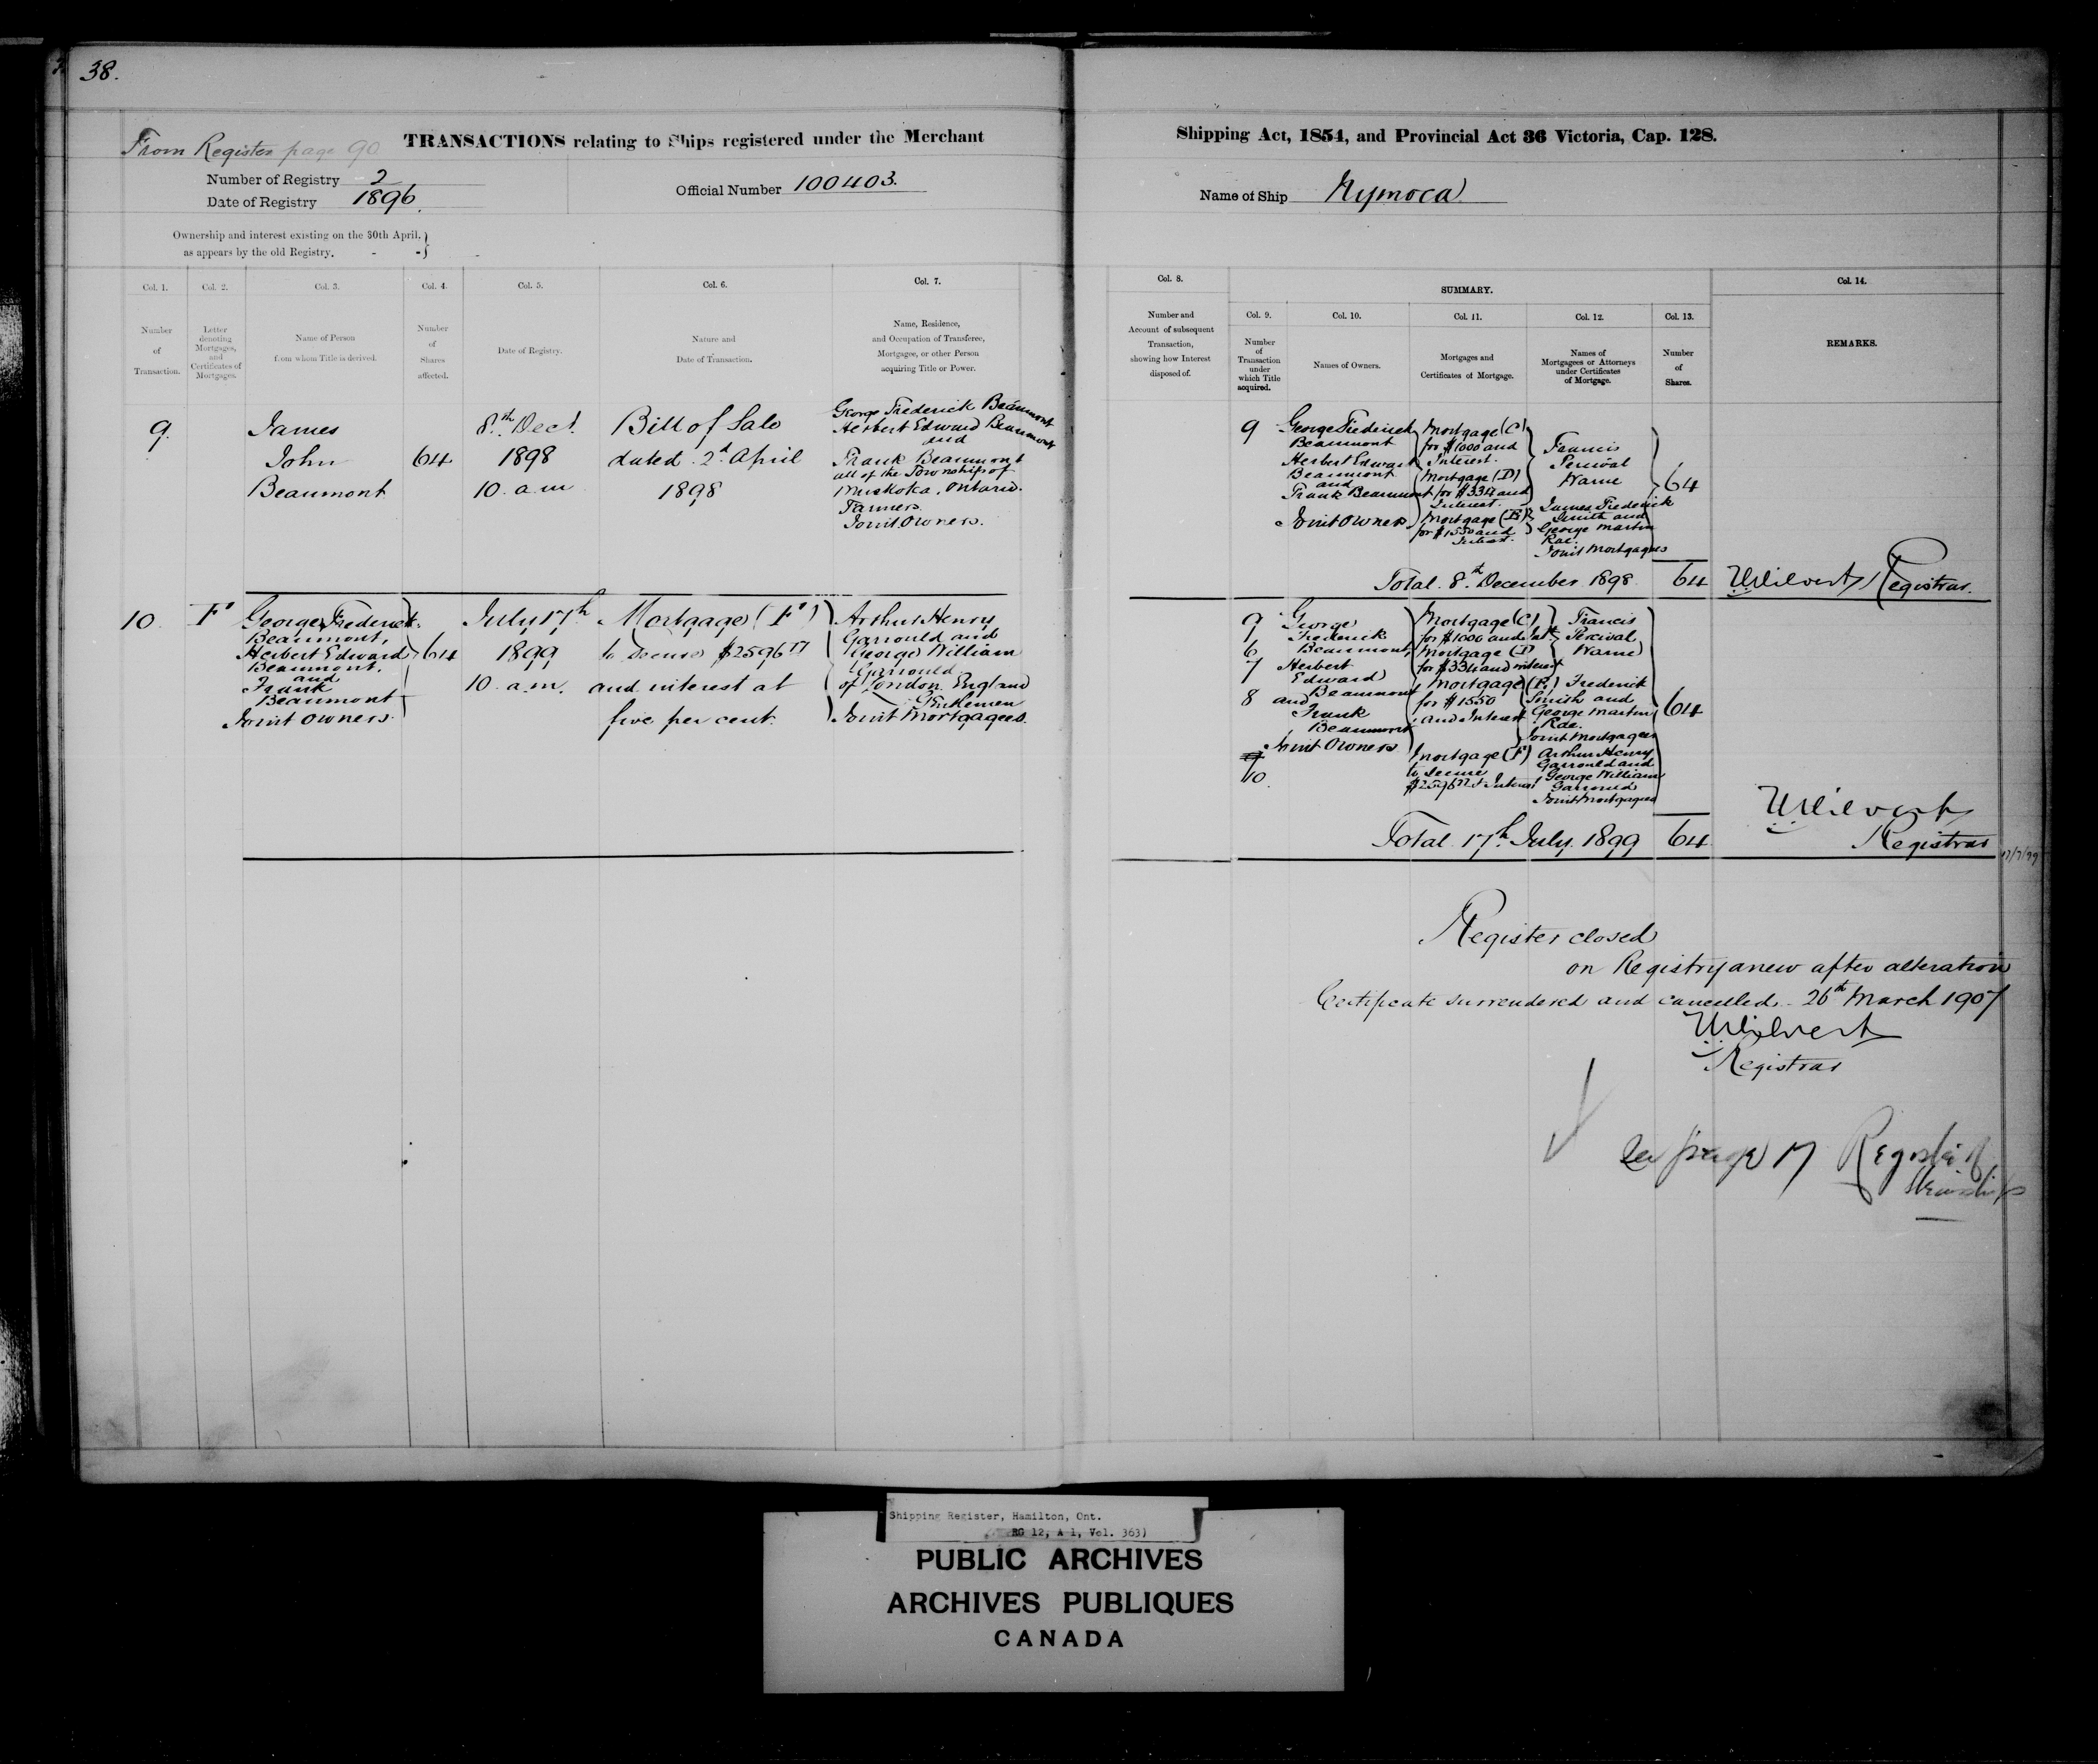 38.
From Register page 90
TRANSACTIONS relating to Ships registered under the Merchant
Shipping Act, 1854, and Provincial Act 36 Victoria, Cap. 128.
Number of Registry 2
Date of Registry 1896.
Official Number 100403.
Name of Ship Nymoca
Ownership and interest existing on the 30th April,
as appears by the old Registry.
Col. 1.
Number
of
Transaction.
Col. 2.
Letter
denoting
Mortgages,
and
Certificates of
Mortgages.
Col. 3.
Name of Person
from whom Title is derived.
Col. 4.
Number
of
Shares
affected.
Col. 5.
Date of Registry.
Col. 6.
Nature and
Date of Transaction.
Col. 7.
Name, Residence,
and Occupation of Transferee,
Mortgagee, or other Person
acquiring Title or Power.
Col. 8.
Number and
Account of subsequent
Transaction,
showing how Interest
disposed of.
SUMMARY.
Col. 9.
Number
of
Transaction
under
which Title
acquired.
Col. 10.
Names of Owners.
Col. 11.
Mortgages and
Certificates of Mortgage.
Col. 12.
Names of
Mortgagees or Attorneys
under Certificates
of Mortgage.
Col. 13.
Number
of
Shares.
Col. 14.
REMARKS.
9.
James
John
Beaumont
64
8th Dect.
1898
10. a.m
Bill of Sale
dated 2d April
1898
George Frederick Beaumont
Herbert Edward Beaumont
and
Frank Beaumont
all of the Township of
Muskoka, Ontario.
Farmers.
Joint Owners.
9
George Frederick
Beaumont
Herbert Edward
Beaumont
and
Frank Beaumont
Joint Owners
Mortgage (C)
for $1000 and
Interest.
Mortgage (D)
for $334 and
Interest.
Mortgage (E)
for $1550 and
Interest.
Francis
Percival
Warne
James Frederick
Smith and
George Martin
Rae.
Joint Mortgagees
64
Total 8th December 1898 64
Registrar.
10
F
George Frederick
Beaumont,
Herbert Edward
Beaumont.
and
Frank
Beaumont
Joint Owners.
64
July 17th
1899
10. a.m.
Mortgage (F)
to secure $2596 17
and interest at
five per cent.
Arthur Henry
Garrould and
George William
Garrould
of London England
Gentlemen
Joint Mortgagees.
9
6
7
8
10.
George
Frederick
Beaumont,
Herbert
Edward
Beaumont
and
Frank
Beaumont
Joint Owners
Mortgage (C)
for $1000 and Int
Mortgage (D)
for $334 and interest
Mortgage (E)
for $1550
and Interest
Mortgage (F)
to secure
$2596 17 & Interest
Francis
Percival
Warne
Frederick
Smith and
George Martin
Rae.
Joint Mortgagees
Arthur Henry
Garrould and
George William
Garrould
Joint Mortgagees
64
Total 17th July 1899 64
Registrar
17/7/99
Register closed
on Registry anew after alteration
Certificate surrendered and cancelled. 26th March 1907
Registrar
See page 17 Register of
Steamships
Shipping Register, Hamilton, Ont.
RG 12, A 1, Vol. 363)
PUBLIC ARCHIVES
ARCHIVES PUBLIQUES
CANADA